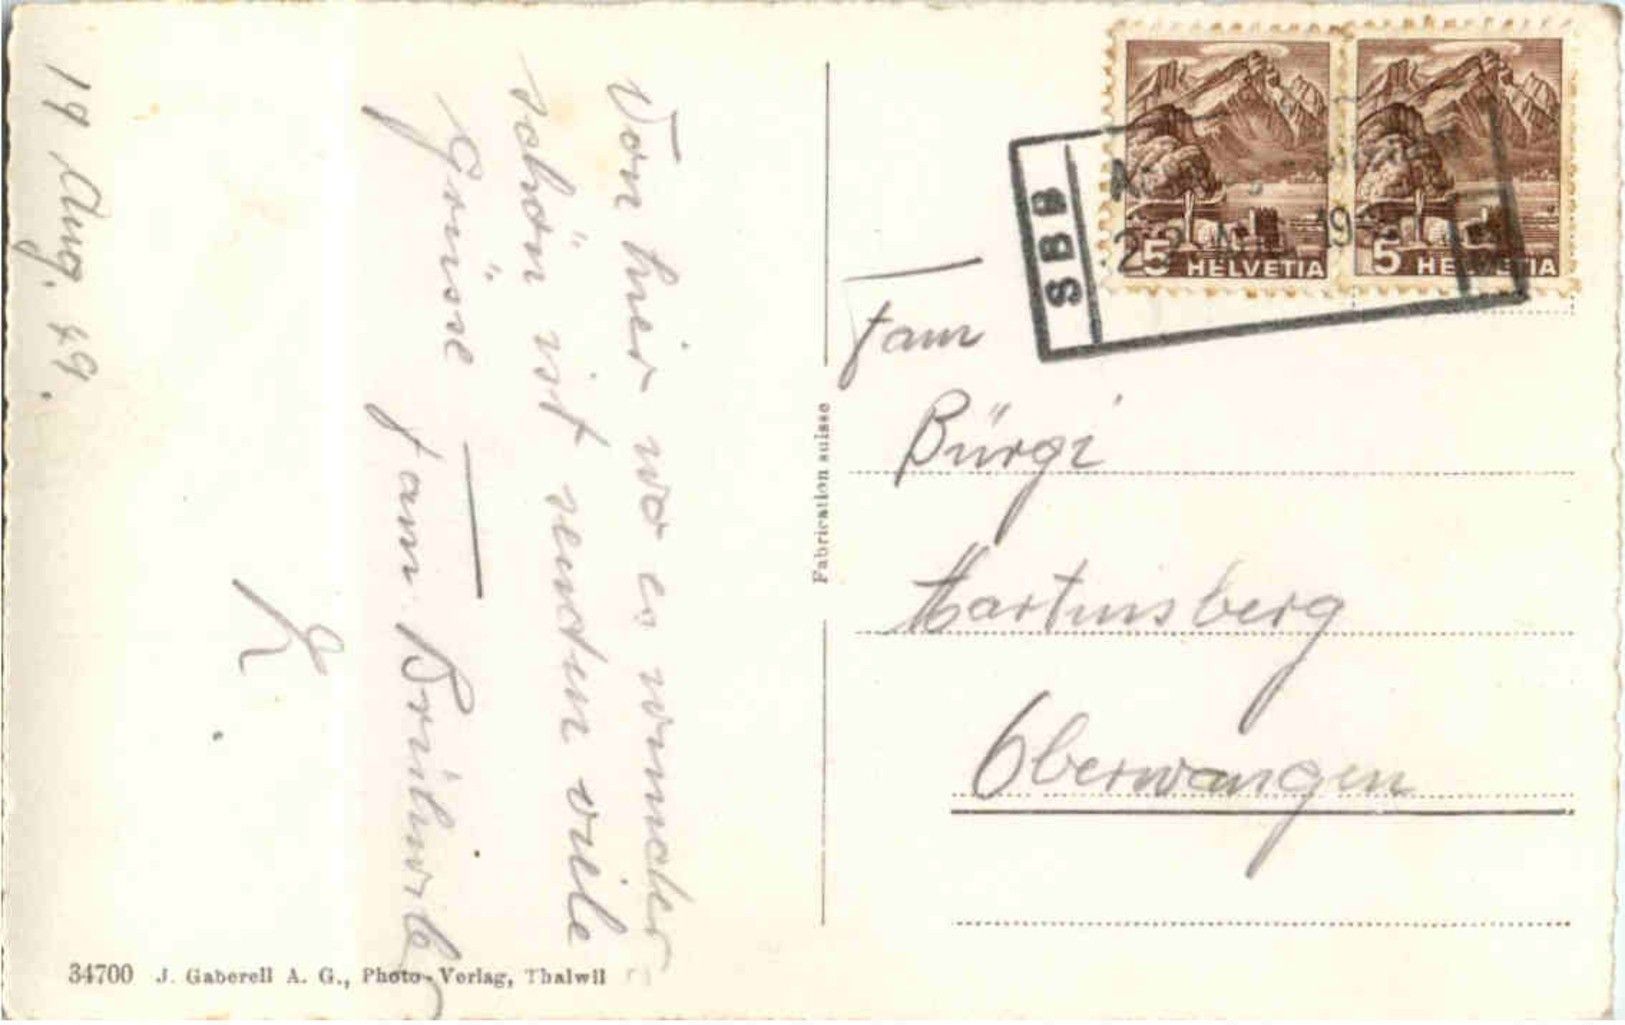 19 Aug. 49.
Von hier wo es wunder
schön ist senden viele
Grüsse
Fam.
Fam
Bürgi
Martinsberg
Oberwangen
SBB
5 HELVETIA
5 HELVETIA
Fabrication suisse
34700 J. Gaberell A. G., Photo-Verlag, Thalwil